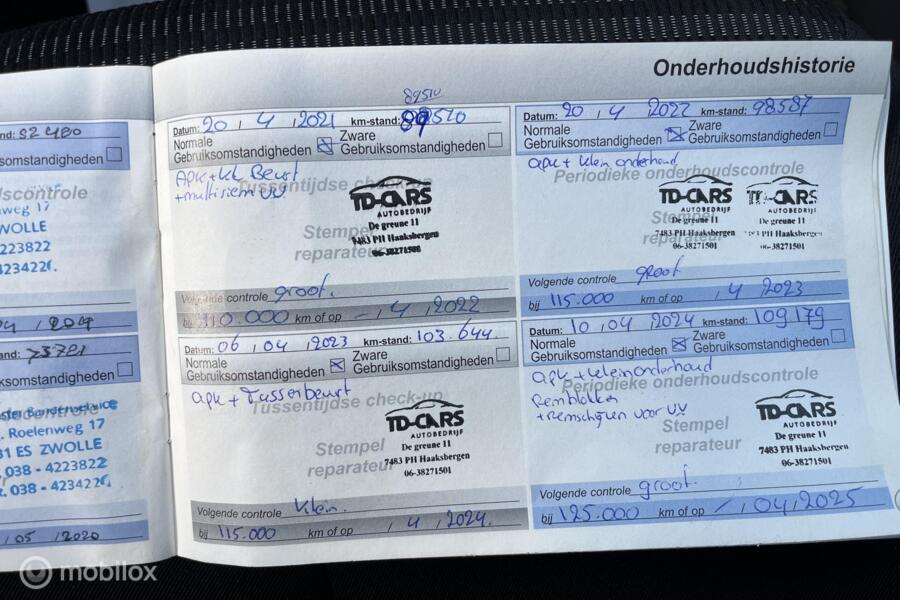 Onderhoudshistorie
nd: 52480
ksomstandigheden
dscontrole
nweg 17
WOLLE
223822
234226.
and: 73781
ksomstandigheden
Bandenservice
. Roelenweg 17
31 ES ZWOLLE
. 038 - 4223822
x. 038 - 4234226.
/ 05 / 2020
89510
Datum: 20 / 4 / 2021 km-stand: 89510
Normale Gebruiksomstandigheden
Zware Gebruiksomstandigheden
APK + kl Beurt
+ multiriem vv.
Tussentijdse check-up
Stempel
reparateur
TD-CARS
AUTOBEDRIJF
De greune 11
7483 PH Haaksbergen
06-38271501
Volgende controle groot.
bij 110.000 km of op - / 4 / 2022
Datum: 20 / 4 / 2022 km-stand: 98587
Normale Gebruiksomstandigheden
Zware Gebruiksomstandigheden
apk + klein onderhoud
Periodieke onderhoudscontrole
Stempel
reparateur
TD-CARS
AUTOBEDRIJF
De greune 11
7483 PH Haaksbergen
06-38271501
CARS
AUTOBEDRIJF
De greune 11
PH Haaksbergen
06-38271501
Volgende controle groot
bij 115.000 km of op / 4 / 2023
Datum: 06 / 04 / 2023 km-stand: 103.644
Normale Gebruiksomstandigheden
Zware Gebruiksomstandigheden
apk + Tussenbeurt
Tussentijdse check-up
Stempel
reparateur
TD-CARS
AUTOBEDRIJF
De greune 11
7483 PH Haaksbergen
06-38271501
Volgende controle klein.
bij 115.000 km of op / 4 / 2024.
Datum: 10 / 04 / 2024 km-stand: 109179
Normale Gebruiksomstandigheden
Zware Gebruiksomstandigheden
apk + klein onderhoud
Periodieke onderhoudscontrole
Remblokken
+ remschijven voor vv
Stempel
reparateur
TD-CARS
AUTOBEDRIJF
De greune 11
7483 PH Haaksbergen
06-38271501
Volgende controle groot.
bij 125.000 km of op - / 04 / 2025
mobilox